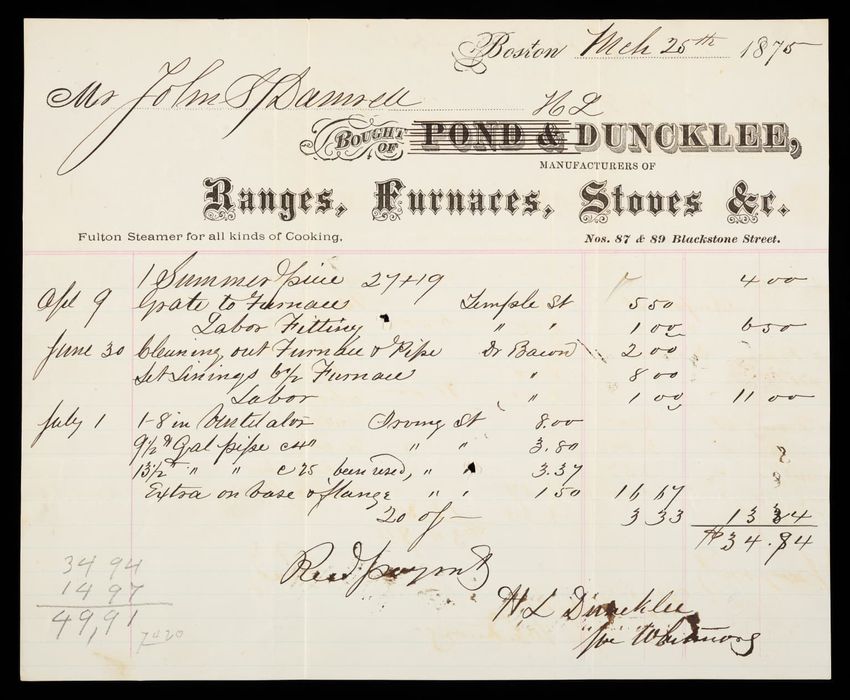 Boston Mch 25th 1875
Mr John S Damrell
H L
BOUGHT OF POND & DUNCKLEE,
MANUFACTURERS OF
Ranges, Furnaces, Stoves &c.
Fulton Steamer for all kinds of Cooking. Nos. 87 & 89 Blackstone Street.
1 Summer piece 27+19 4 00
Apl 9 Grate to Furnace Temple St 5 50
Labor Fitting " " 1 00 6 50
June 30 Cleaning out Furnace & Pipe Dr Bacon 2 00
Set Linings Furnace " 8 00
Labor " 1 00 11 00
July 1 1-8 in Ventilator Irving St 8.00
9½ " Gal pipe c40 " " 3.80
13½ " " " c25 been used, " " 3.37
Extra on base & flange " " 1 50 16 67
20 off 3 33 13 34
$34.84
Recd paymt
H L Duncklee
34 94
14 97
49,91